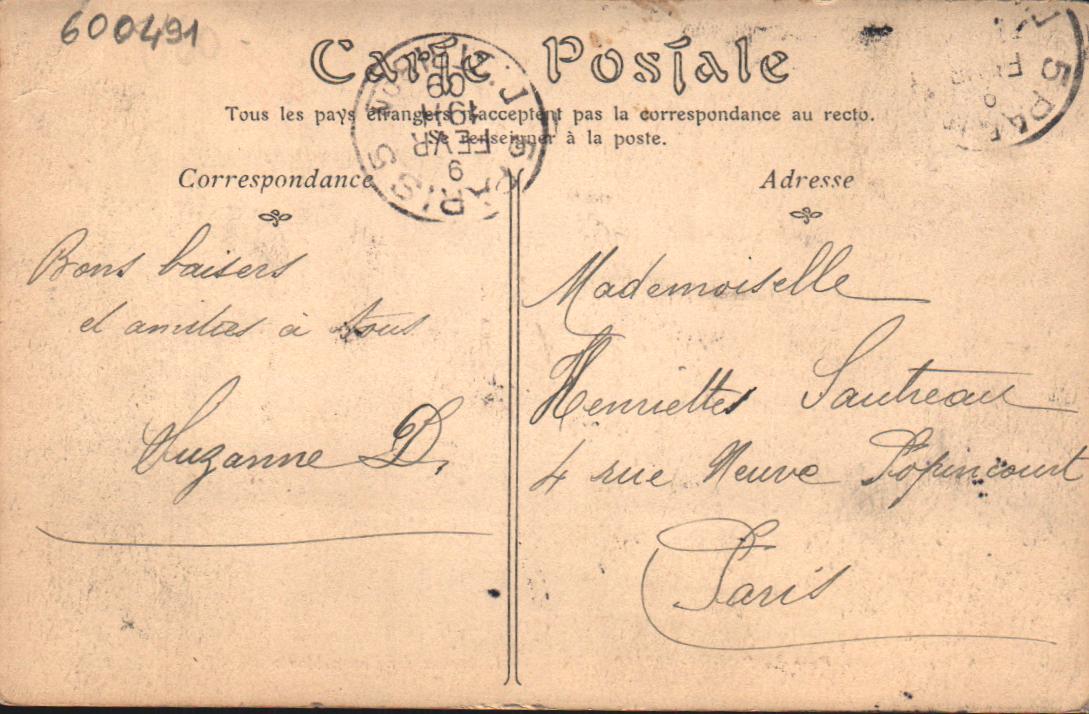 600491
Carte Postale
Tous les pays étrangers n'acceptent pas la correspondance au recto.
Se renseigner à la poste.
Correspondance
Bons baisers
et amitiés à tous
Suzanne D.
Adresse
Mademoiselle
Henriettes Sautreau
4 rue Neuve Popincourt
Paris
PARIS 5
9
FEVR
19 H
09
5 PAR